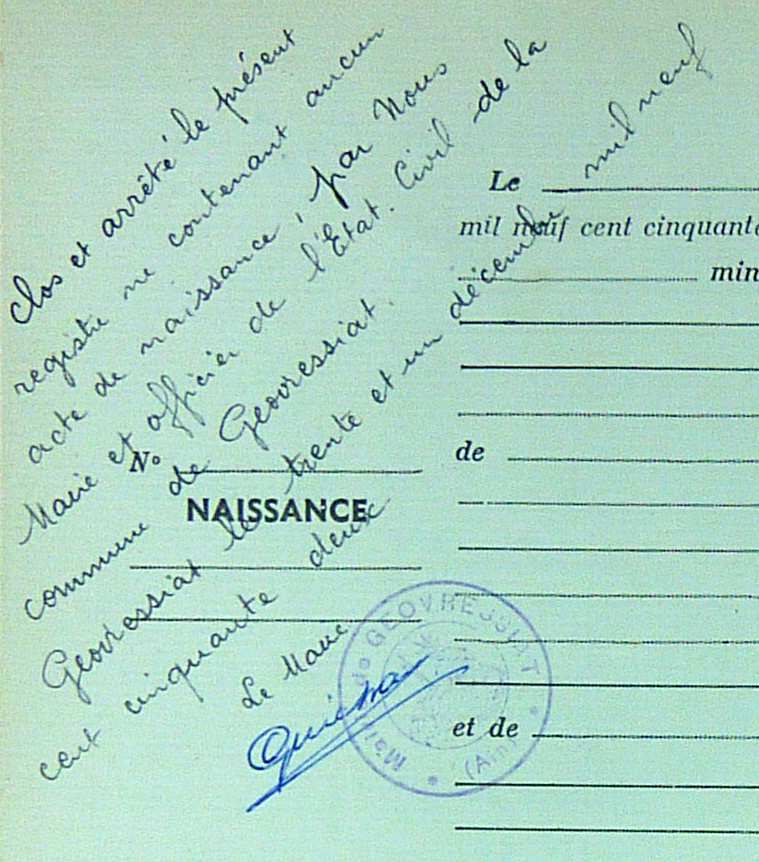 Clos et arrêté le présent
registre ne contenant aucun
acte de naissance, par Nous
Maire et officier de l'Etat-Civil de la
commune de Geovressiat.
Geovressiat le trente et un décembre mil neuf
cent cinquante deux
Le Maire
Mairie de GEOVREISSIAT
(Ain)
No
NAISSANCE
Le
mil neuf cent cinquante
min
de
et de